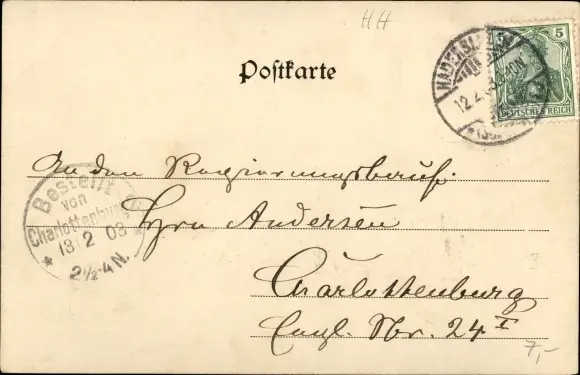 HH
Postkarte
HADERSLEBEN
12.2.03
5 5
DEUTSCHES REICH
An den Regierungsbauf.
Herrn Andersen
Charlottenburg
Engl. Str. 24 I
Bestellt
von
Charlottenburg
13 2 03
2½-4 N.
7,-
3